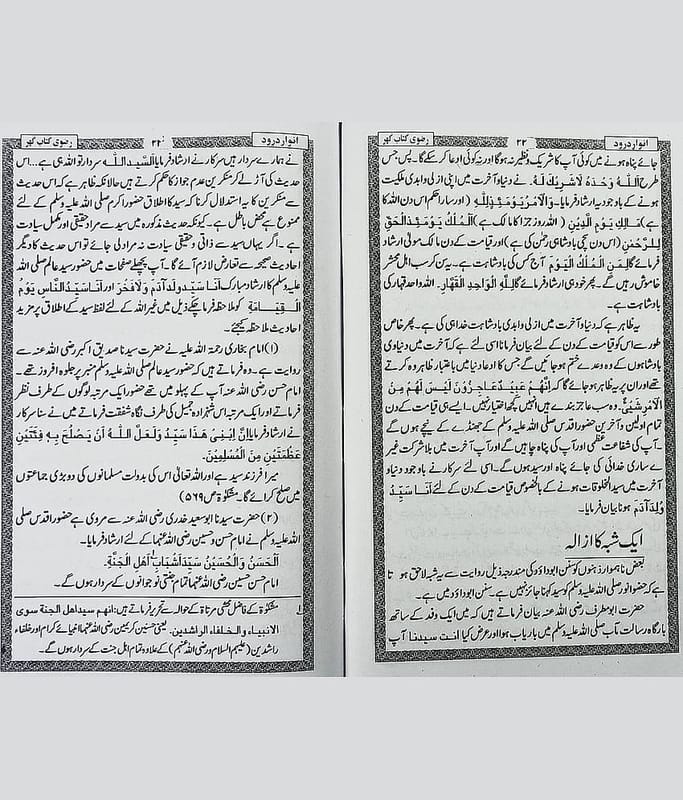 انوار درود ۲۲ رضوی کتاب گھر
جائے پناہ ہونے میں کوئی آپ کا شریک و نظیر نہ ہوگا اور نہ کوئی ادعا کر سکے گا۔ پس جس
طرح اَللّٰهُ وَحْدَهٗ لَا شَرِيْكَ لَهٗ. نے دنیا و آخرت میں اپنی ازلی و ابدی ملکیت
ہونے کے باوجود یہ ارشاد فرمایا۔ وَالْاَمْرُ يَوْمَئِذٍ لِلّٰهِ (اور سارا حکم اس دن اللہ کا
ہے) مَالِكِ يَوْمِ الدِّيْنِ (اللہ روز جزا کا مالک ہے) اَلْمُلْكُ يَوْمَئِذِ الْحَقُّ
لِلرَّحْمٰنِ (اس دن سچی بادشاہی رحمٰن کی ہے) اور قیامت کے دن مالک مولیٰ ارشاد
فرمائے گا لِمَنِ الْمُلْكُ الْيَوْمَ آج کس کی بادشاہت ہے۔ یہ سن کر سب اہل محشر
خاموش رہیں گے۔ پھر خود ہی ارشاد فرمائے گا لِلّٰهِ الْوَاحِدِ الْقَهَّارِ. اللہ واحد قہار کی
بادشاہت ہے۔
یہ ظاہر ہے کہ دنیا و آخرت میں ازلی و ابدی بادشاہت خدا ہی کی ہے۔ پھر خاص
طور سے اس کو قیامت کے دن کے لئے بیان فرمانا اسی لئے ہے کہ آخرت میں دنیاوی
بادشاہوں کے وہ دعدے ختم ہو جائیں گے جس کا ادعا دنیا میں باعتبار ظاہر وہ کرتے
تھے اور ان پر یہ ظاہر ہو جائے گا کہ اِنَّهُمْ عَبِيْدٌ عَاجِزُوْنَ لَيْسَ لَهُمْ مِنَ
الْاَمْرِ شَيْئٌ. وہ سب عاجز بندے ہیں انھیں کچھ اختیار نہیں۔ ایسے ہی قیامت کے دن
تمام اولین و آخرین حضور اقدس صلی اللہ علیہ وسلم کے جھنڈے کے نیچے ہوں گے
۔ آپ کی شفاعت عظمیٰ اور آپ کی پناہ چاہیں گے اور آپ آخرت میں بلا شرکت غیر
ے ساری خدائی کی جائے پناہ اور سید ہوں گے۔ اسی لئے سرکار نے باوجود دنیا و
آخرت میں سید المخلوقات ہونے کے بالخصوص قیامت کے دن کے لئے اَنَا سَيِّدُ
وُلْدِ آدَمَ ہونا بیان فرمایا۔
ایک شبہ کا ازالہ
بعض ناہموار ذہنوں کو سنن ابوداؤد کی مندرجہ ذیل روایت سے یہ شبہ لاحق ہو تا
ہے کہ حضور انور صلی اللہ علیہ وسلم کو سید کہنا جائز نہیں ہے۔ سنن ابوداؤد میں ہے۔
حضرت ابو مطرف رضی اللہ عنہ بیان فرماتے ہیں کہ میں ایک وفد کے ساتھ
بارگاہ رسالت مآب صلی اللہ علیہ وسلم میں باریاب ہوا اور عرض کیا انت سیدنا آپ
انوار درود ۲۳ رضوی کتاب گھر
نے ہمارے سردار ہیں سرکار نے ارشاد فرمایا اَلسَّيِّدُ اللّٰهُ سردار تو اللہ ہی ہے... اس
حدیث کی آڑ لے کر منکرین عدم جواز کا حکم کرتے ہیں حالانکہ ظاہر ہے کہ اس حدیث
سے منکرین کا یہ استدلال کرنا کہ سید کا اطلاق حضور اکرم صلی اللہ علیہ وسلم کے لئے
ممنوع ہے محض باطل ہے۔ کیونکہ حدیث مذکورہ میں سید سے مراد حقیقی اور مکمل سیادت
ہے۔ اگر یہاں سید سے ذاتی و حقیقی سیادت نہ مراد لی جائے تو اس حدیث کا دیگر
احادیث صحیحہ سے تعارض لازم آئے گا۔ آپ پچھلے صفحات میں حضور سید عالم صلی اللہ
علیہ وسلم کا ارشاد مبارک اَنَا سَيِّدُ وُلْدِ آدَمَ وَلَا فَخْرَ اور اَنَا سَيِّدُ النَّاسِ يَوْمَ
الْقِيَامَةِ کو ملاحظہ فرما چکے ذیل میں غیر اللہ کے لئے لفظ سید کے اطلاق پر مزید
احادیث ملاحظہ کیجئے۔
(۱) امام بخاری رحمۃ اللہ علیہ نے حضرت سیدنا صدیق اکبر رضی اللہ عنہ سے
روایت ہے۔ وہ فرماتے ہیں کہ حضور سید عالم صلی اللہ علیہ وسلم منبر پر جلوہ افروز تھے۔
امام حسن رضی اللہ عنہ آپ کے پہلو میں تھے حضور ایک مرتبہ لوگوں کے طرف نظر
فرماتے اور ایک مرتبہ اس شہزادہ جمیل کی طرف نگاہ شفقت فرماتے میں نے سنا سرکار
نے ارشاد فرمایا اِنَّ اِبْنِيْ هٰذَا سَيِّدٌ وَلَعَلَّ اللّٰهَ اَنْ يُصْلِحَ بِهٖ فِئَتَيْنِ
عَظِمَتَيْنِ مِنَ الْمُسْلِمِيْنَ.
میرا فرزند سید ہے اور اللہ تعالیٰ اس کی بدولت مسلمانوں کی دو بڑی جماعتوں
میں صلح کرائے گا۔ مشکوٰۃ ص ۵۶۹)
(۲) حضرت سیدنا ابو سعید خدری رضی اللہ عنہ سے مروی ہے حضور اقدس صلی
اللہ علیہ وسلم نے امام حسن و حسین رضی اللہ عنہما کے لئے ارشاد فرمایا۔
اَلْحَسَنُ وَالْحُسَيْنُ سَيِّدَا شَبَابِ اَهْلِ الْجَنَّةِ.
امام حسن حسین رضی اللہ عنہما تمام جنتی نوجوانوں کے سردار ہوں گے۔
۱ مشکوٰۃ کے فاضل محشی مرقاۃ کے حوالہ سے تحریر فرماتے ہیں انهم سيد اهل الجنة سوى
الانبياء والخلفاء الراشدين. یعنی حسنین کریمین رضی اللہ عنہما انبیائے کرام اور خلفاء
راشدین (علیہم السلام و رضی اللہ عنہم) کے علاوہ تمام اہل جنت کے سردار ہوں گے۔